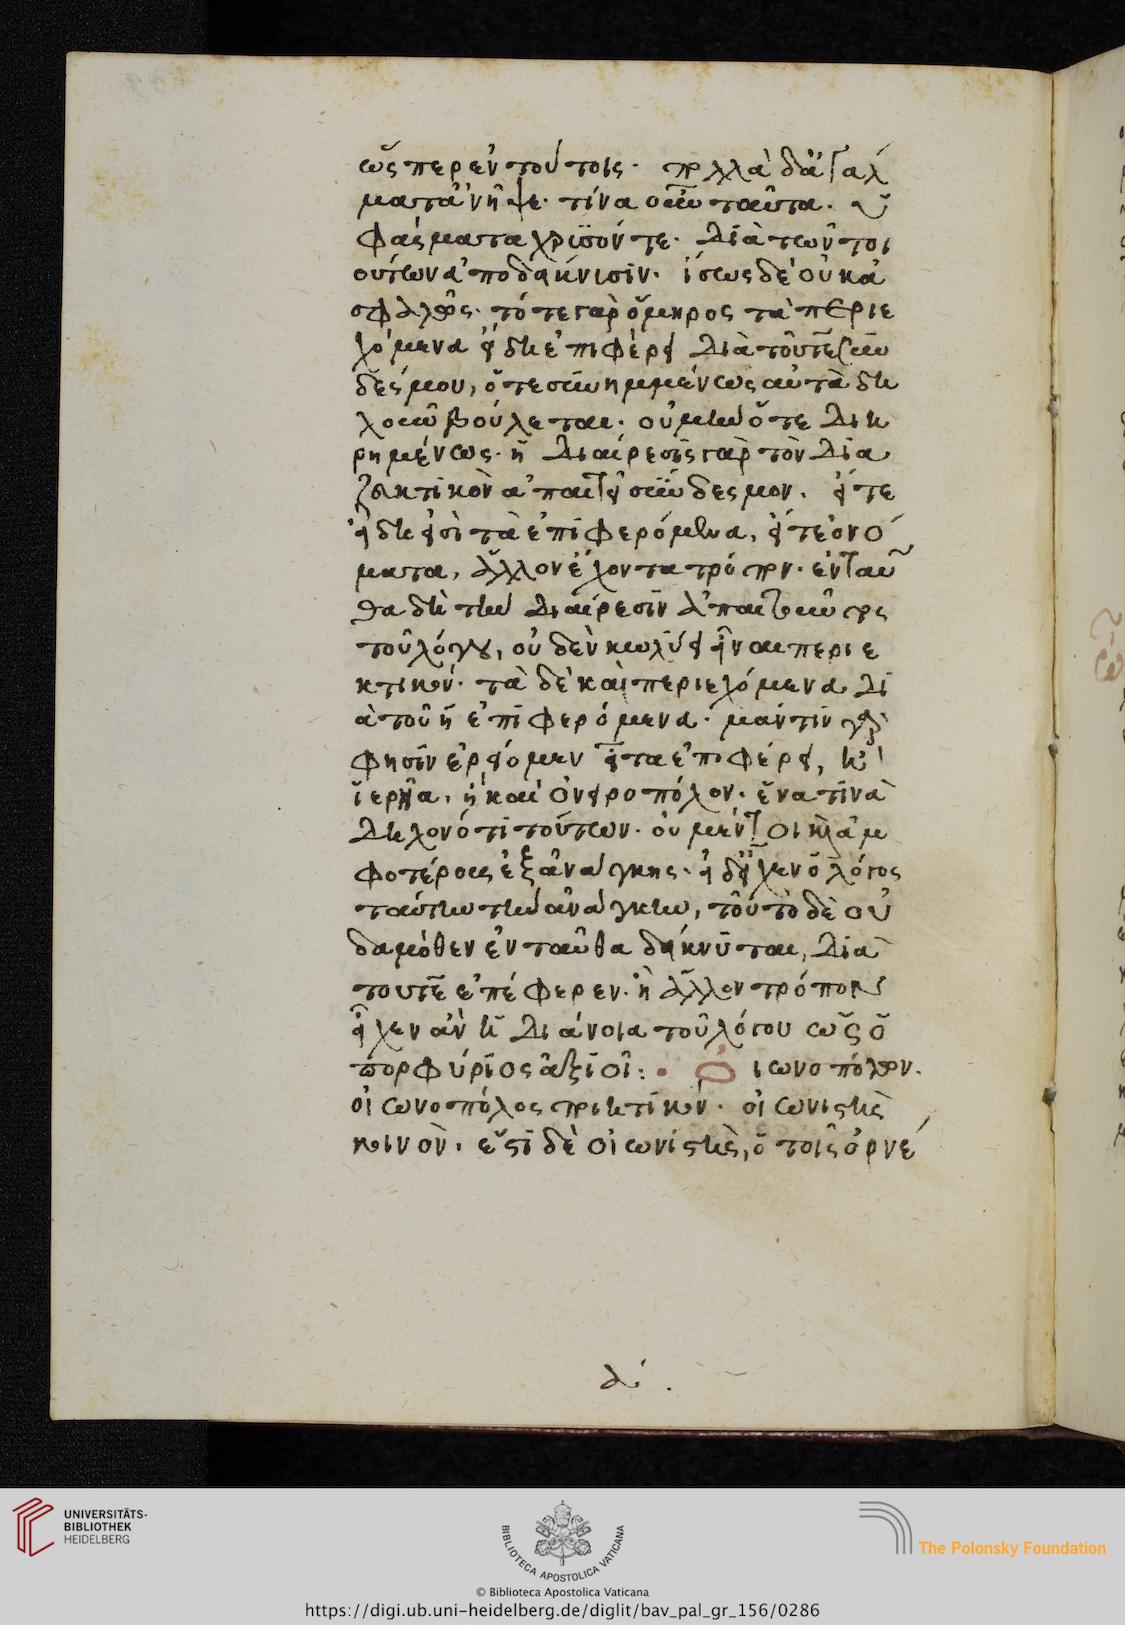 ὥσπερ ἐν τούτοις· πολλὰ δ' ἄγάλ
ματ' ἀνῆψε· τίνα οὖν ταῦτα·
φάσματα χρυσόν τε· διὰ τῶν τοι
ούτων ἀποδείκνυσιν· ἴσως δὲ οὐκ ἀ
σφαλῶς· τότε γὰρ ὅμηρος τὰ περιε
χόμενα εἴδη ἐπιφέρει διὰ τοῦ τε συν
δέσμου, ὅτε συνημμένως αὐτὰ δη
λοῦν βούλεται· οὐ μὴν ὅτε διη
ρημένως· ἡ διαίρεσις γὰρ τὸν δια
ζευκτικὸν ἀπαιτεῖ σύνδεσμον· εἴτε
εἴδη εἰσὶ τὰ ἐπιφερόμενα, εἴτε ὀνό
ματα, ἄλλον ἔχοντα τρόπον· ἐνταῦ
θα δὴ τὴν διαίρεσιν ἀπαιτοῦντος
τοῦ λόγου, οὐδὲν κωλύει εἶναι περιε
κτικόν· τὰ δὲ καὶ περιεχόμενα δι
ὰ τοῦ ἢ ἐπιφερόμενα· μάντιν γάρ
φησιν ἐρείομεν εἶτα ἐπιφέρει, ἢ
ἱερῆα, ἢ καὶ ὀνειροπόλον· ἕνα τινὰ
δηλονότι τούτων· οὐ μέντοι καὶ ἀμ
φοτέρους ἐξ ἀνάγκης· εἰ δ' εἶχεν ὁ λόγος
ταύτην τὴν ἀνάγκην, τοῦτο δὲ οὐ
δαμόθεν ἐνταῦθα δείκνυται, διὰ
τοῦ τε ἐπέφερεν· ἢ ἄλλον τρόπον
εἶχεν ἂν ἡ διάνοια τοῦ λόγου ὡς ὁ
πορφύριος ἀξιοῖ: • Οἰωνοπόλων·
οἰωνοπόλος ποιητικόν· οἰωνιστὴς
κοινόν· ἔστι δὲ οἰωνιστὴς, ὁ τοῖς ὀρνέ
UNIVERSITÄTS-
BIBLIOTHEK
HEIDELBERG
BIBLIOTECA APOSTOLICA VATICANA
The Polonsky Foundation
© Biblioteca Apostolica Vaticana
https://digi.ub.uni-heidelberg.de/diglit/bav_pal_gr_156/0286